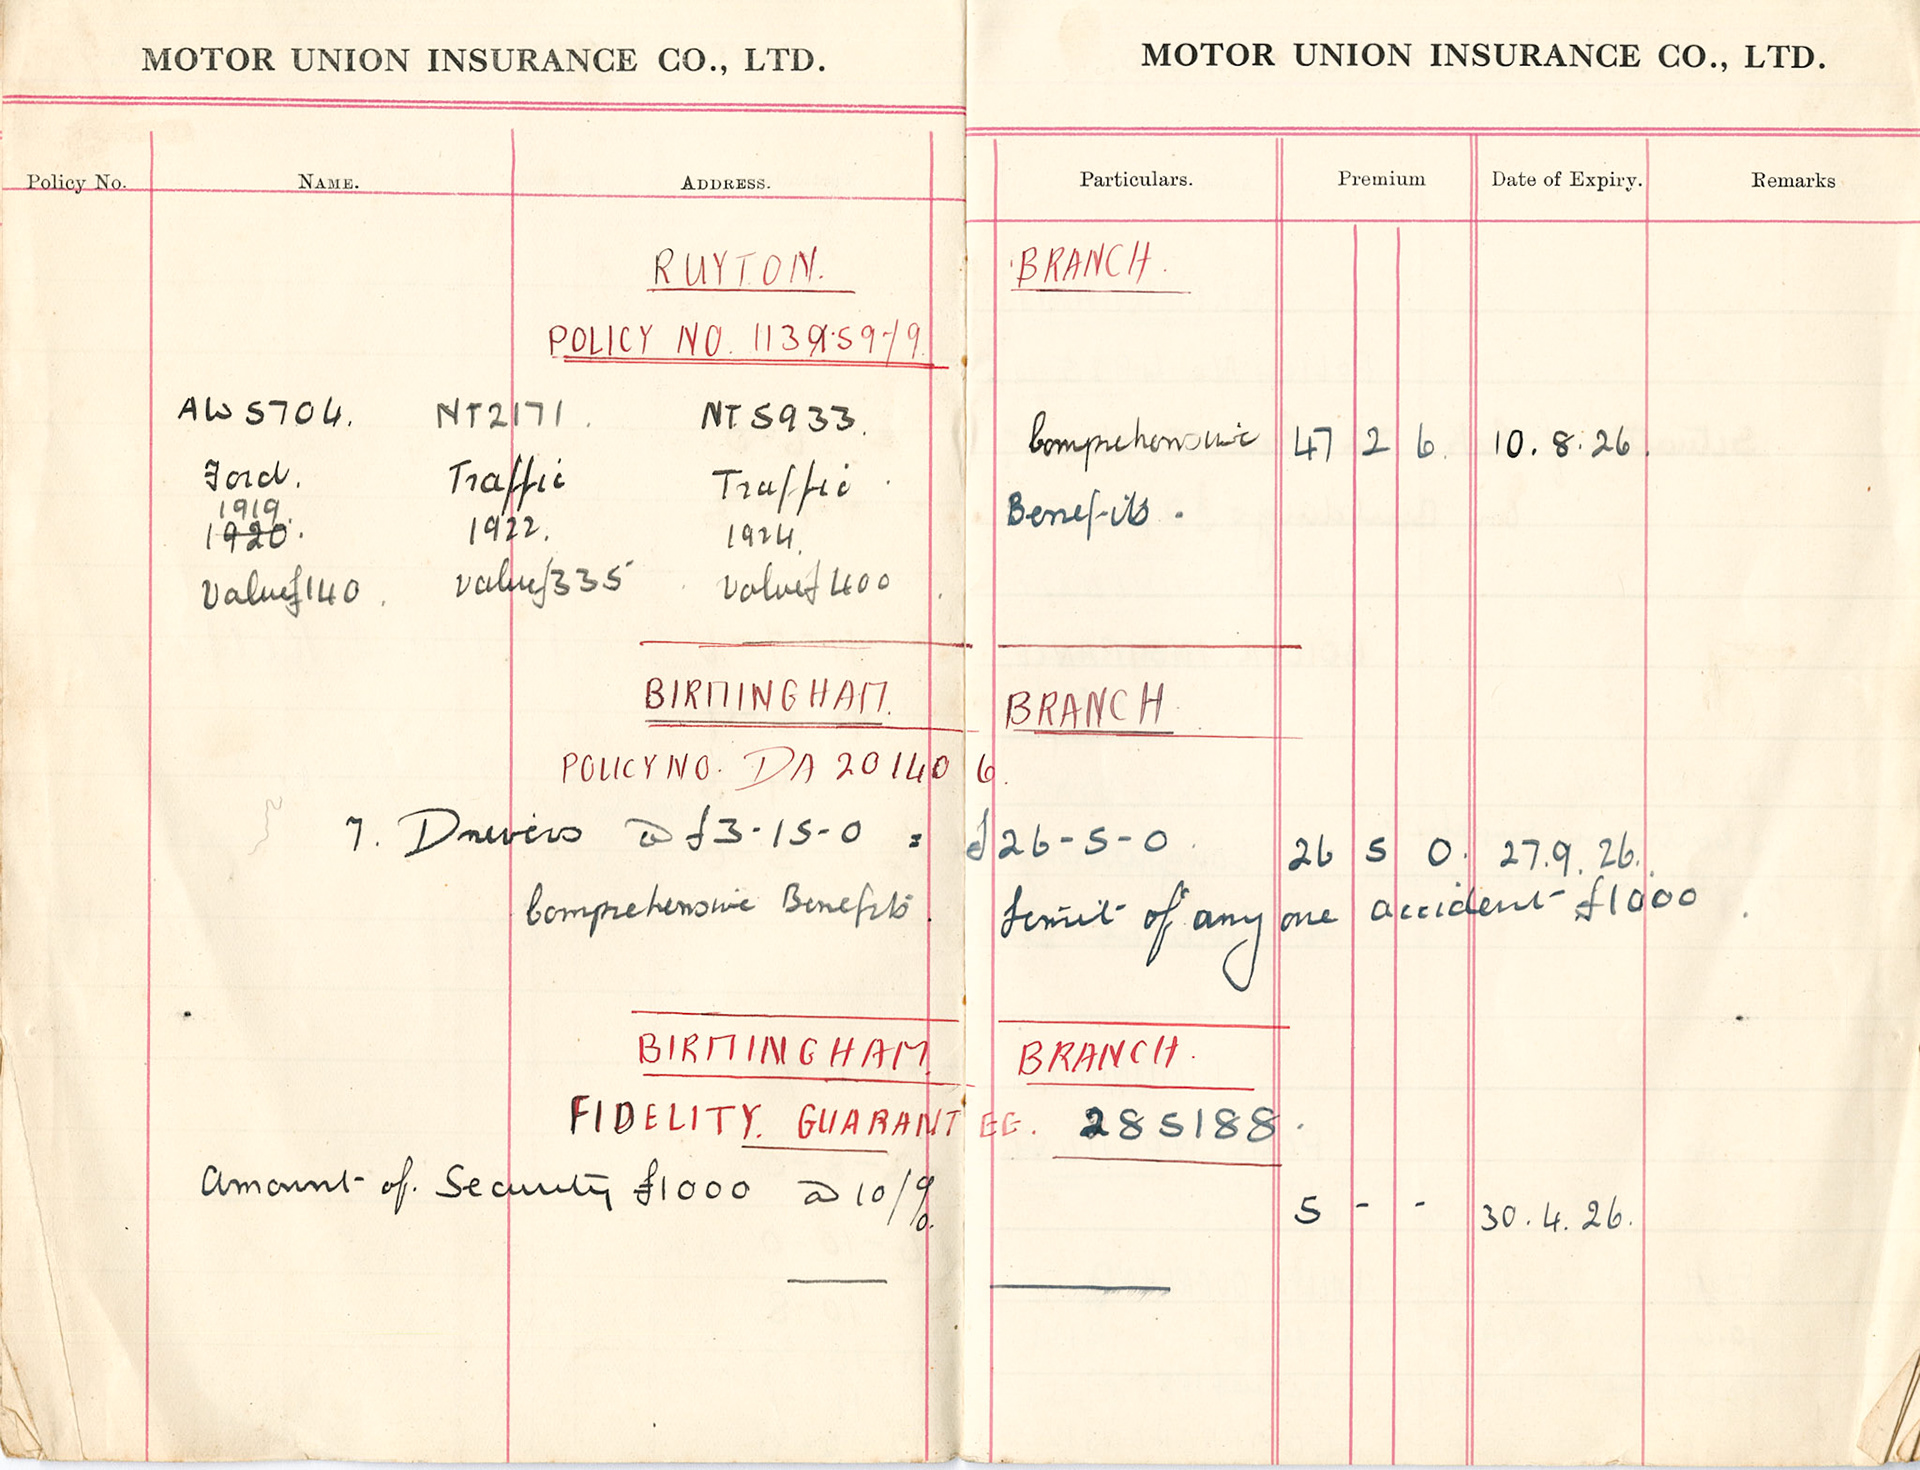 MOTOR UNION INSURANCE CO., LTD. MOTOR UNION INSURANCE CO., LTD.
Policy No. NAME. ADDRESS. Particulars. Premium Date of Expiry. Remarks
RUYTON. BRANCH.
POLICY NO.
AW 5704. NT2171. NT 5933.
Comprehensive 47 2 6. 10.8.26.
Ford. Traffic Traffic.
1919.
1920. 1922. 1924.
Benefits.
Value £140. value £335 Value £400.
BIRMINGHAM. BRANCH
POLICY NO. DA 201406.
7. Drivers @ £3-15-0 = £26-5-0. 26 5 0. 27.9.26.
Comprehensive Benefits. Limit of any one accident £1000.
BIRMINGHAM. BRANCH.
FIDELITY. GUARANTEE. 285188.
Amount of. Security £1000 @ 10/%. 5 - - 30.4.26.